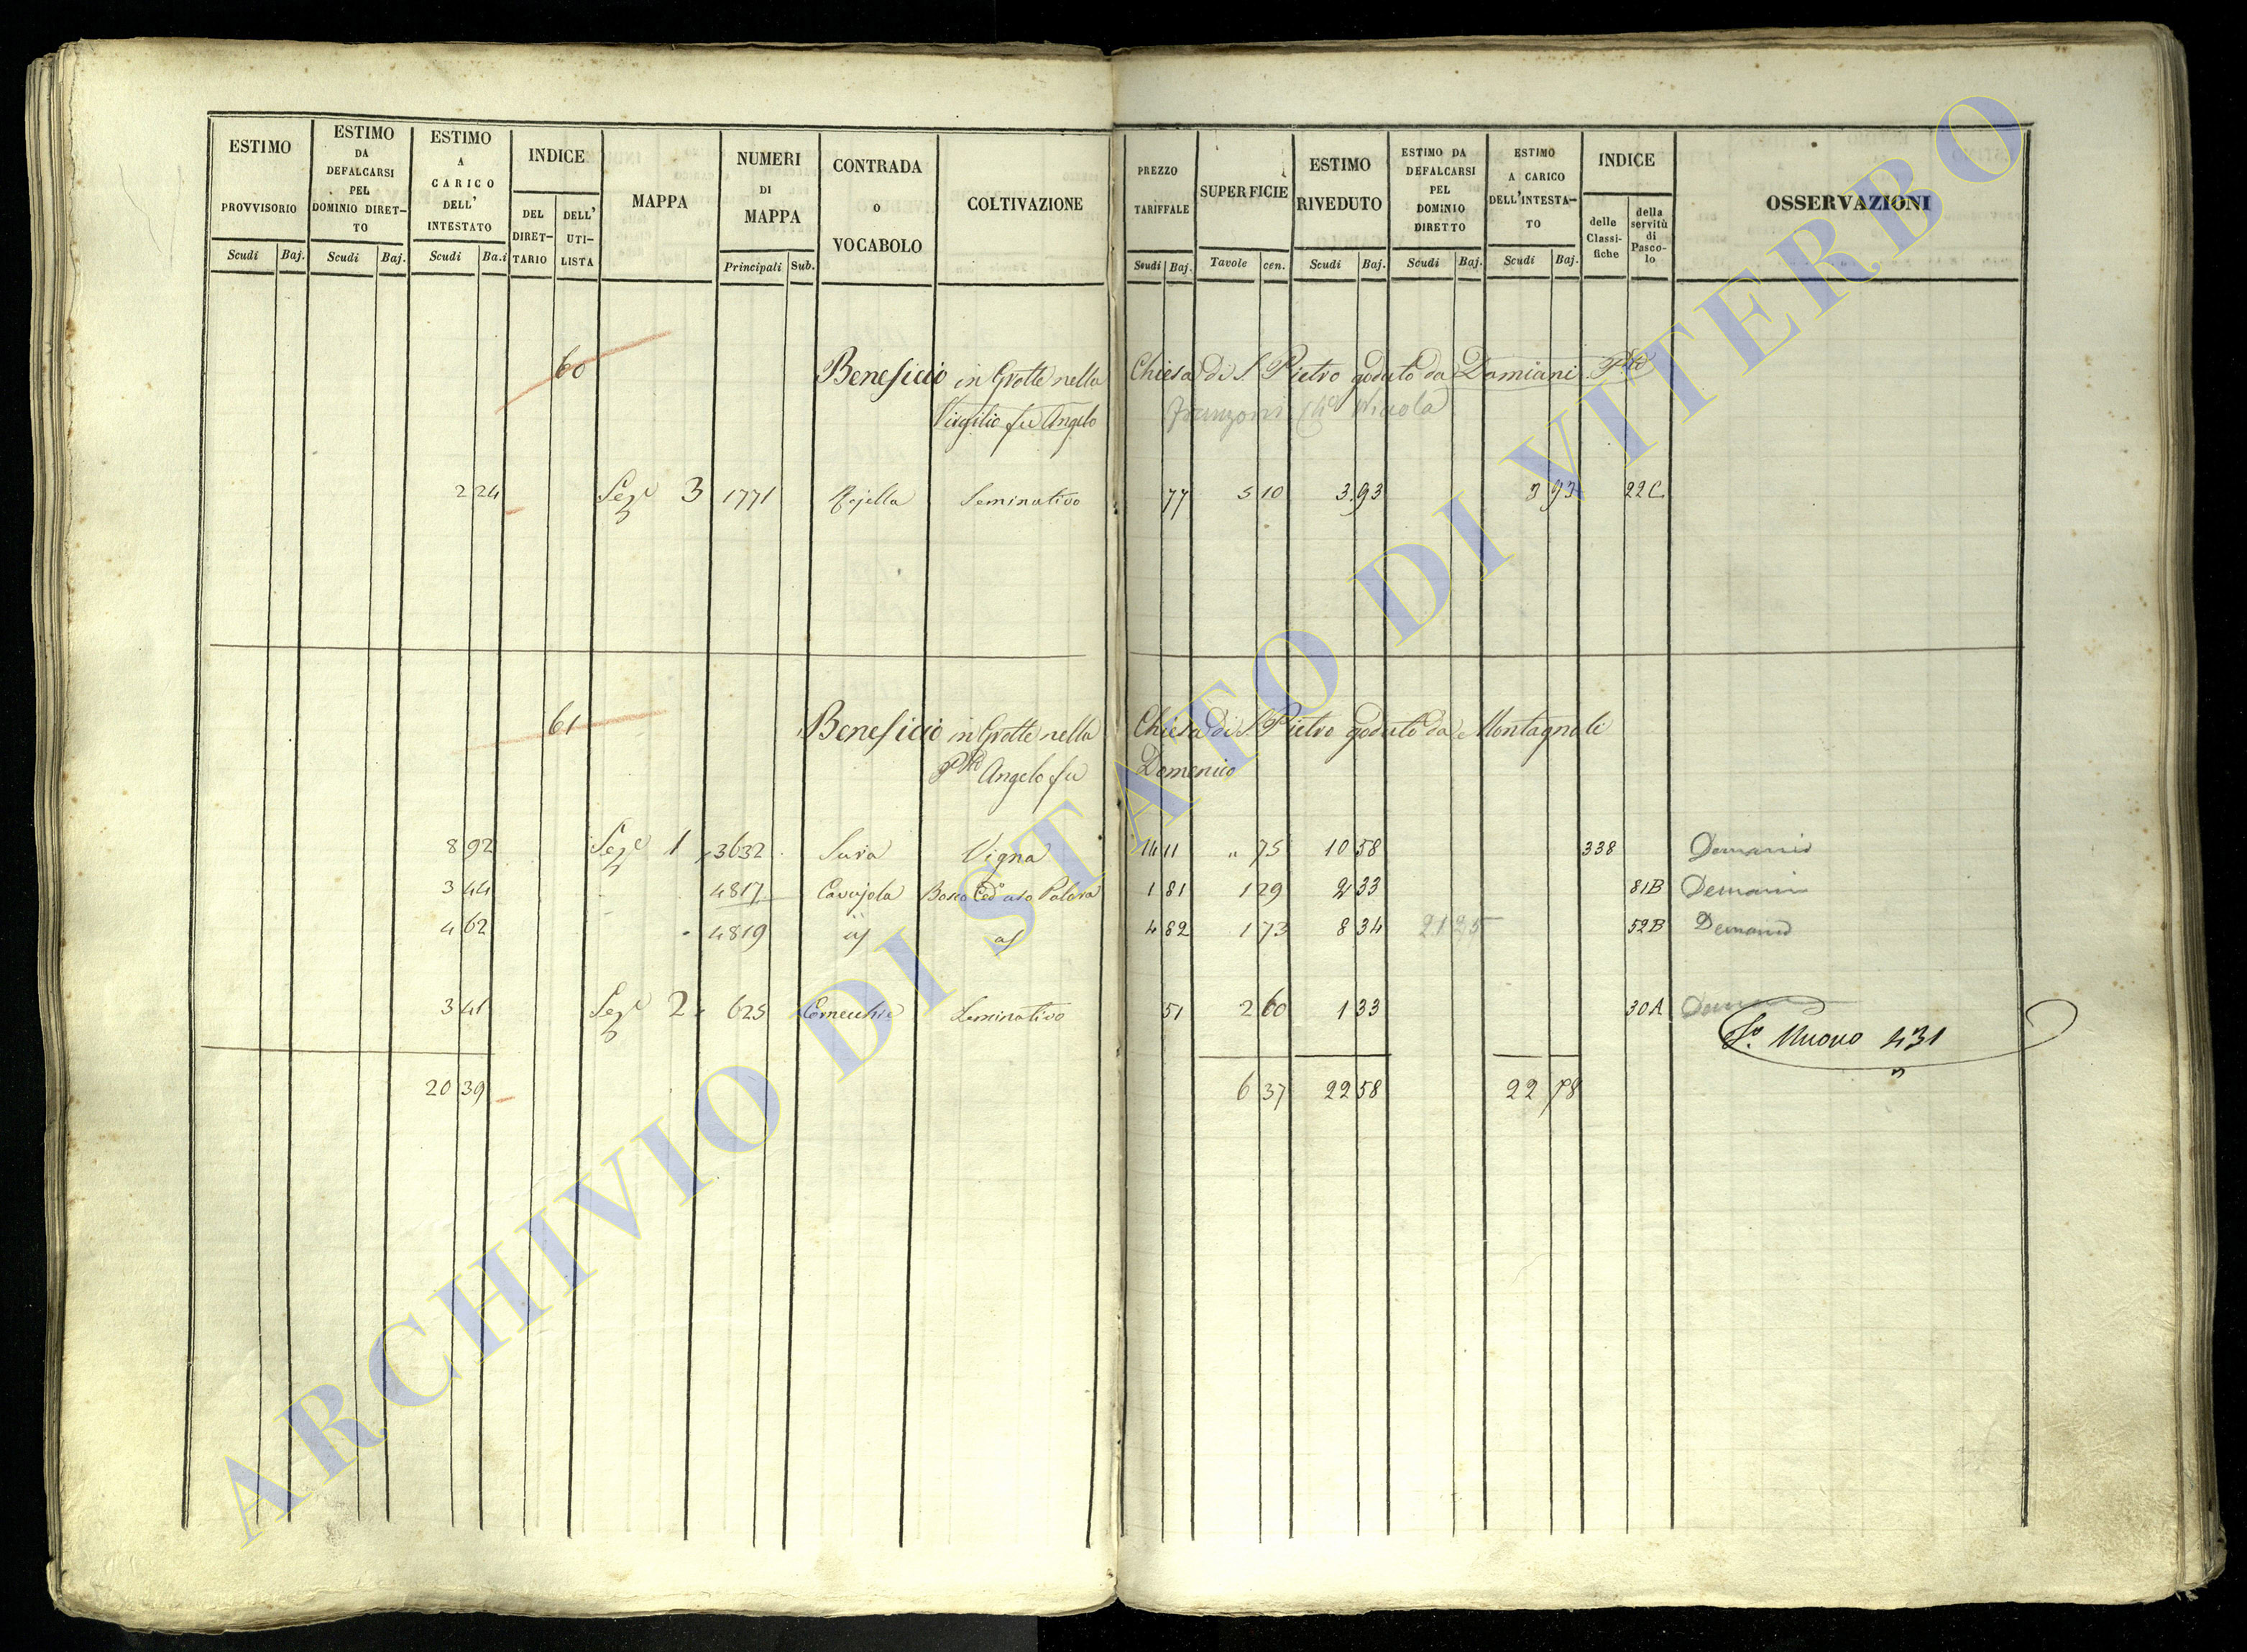 ESTIMO PROVVISORIO Scudi Baj.
ESTIMO DA DEFALCARSI PEL DOMINIO DIRET-TO Scudi Baj.
ESTIMO A CARICO DELL' INTESTATO Scudi Ba.i
INDICE DEL DIRET-TARIO DELL' UTI-LISTA
MAPPA
NUMERI DI MAPPA Principali Sub.
CONTRADA o VOCABOLO
COLTIVAZIONE
PREZZO TARIFFALE Scudi Baj.
SUPERFICIE Tavole cen.
ESTIMO RIVEDUTO Scudi Baj.
ESTIMO DA DEFALCARSI PEL DOMINIO DIRETTO Scudi Baj.
ESTIMO A CARICO DELL'INTESTA-TO Scudi Baj.
INDICE delle Classi-fiche della servitù di Pasco-lo
OSSERVAZIONI
60 Beneficio in Grotte nella Chiesa di S. Pietro goduto da Damiani
Virgilio fu Angelo Nicola
2 24 Seze 3 1771 Seminativo 77 5 10 3 93 3 93 22 C
61 Beneficio in Grotte nella Chiesa di S. Pietro goduto da Montagnoli
Angelo fu Domenico
8 92 Seze 1 3632 Vigna 14 11 " 75 10 58 338 Demanio
3 44 4817 Cavajola Bosco Ced° uso Palina 1 81 1 29 2 33 81B Demanio
4 62 4819 4 82 1 73 8 34 21 35 52B Demanio
3 41 Seze 2 625 Seminativo 51 2 60 1 33 30A
Nuovo 431
20 39 6 37 22 58 22 78
ARCHIVIO DI STATO DI VITERBO